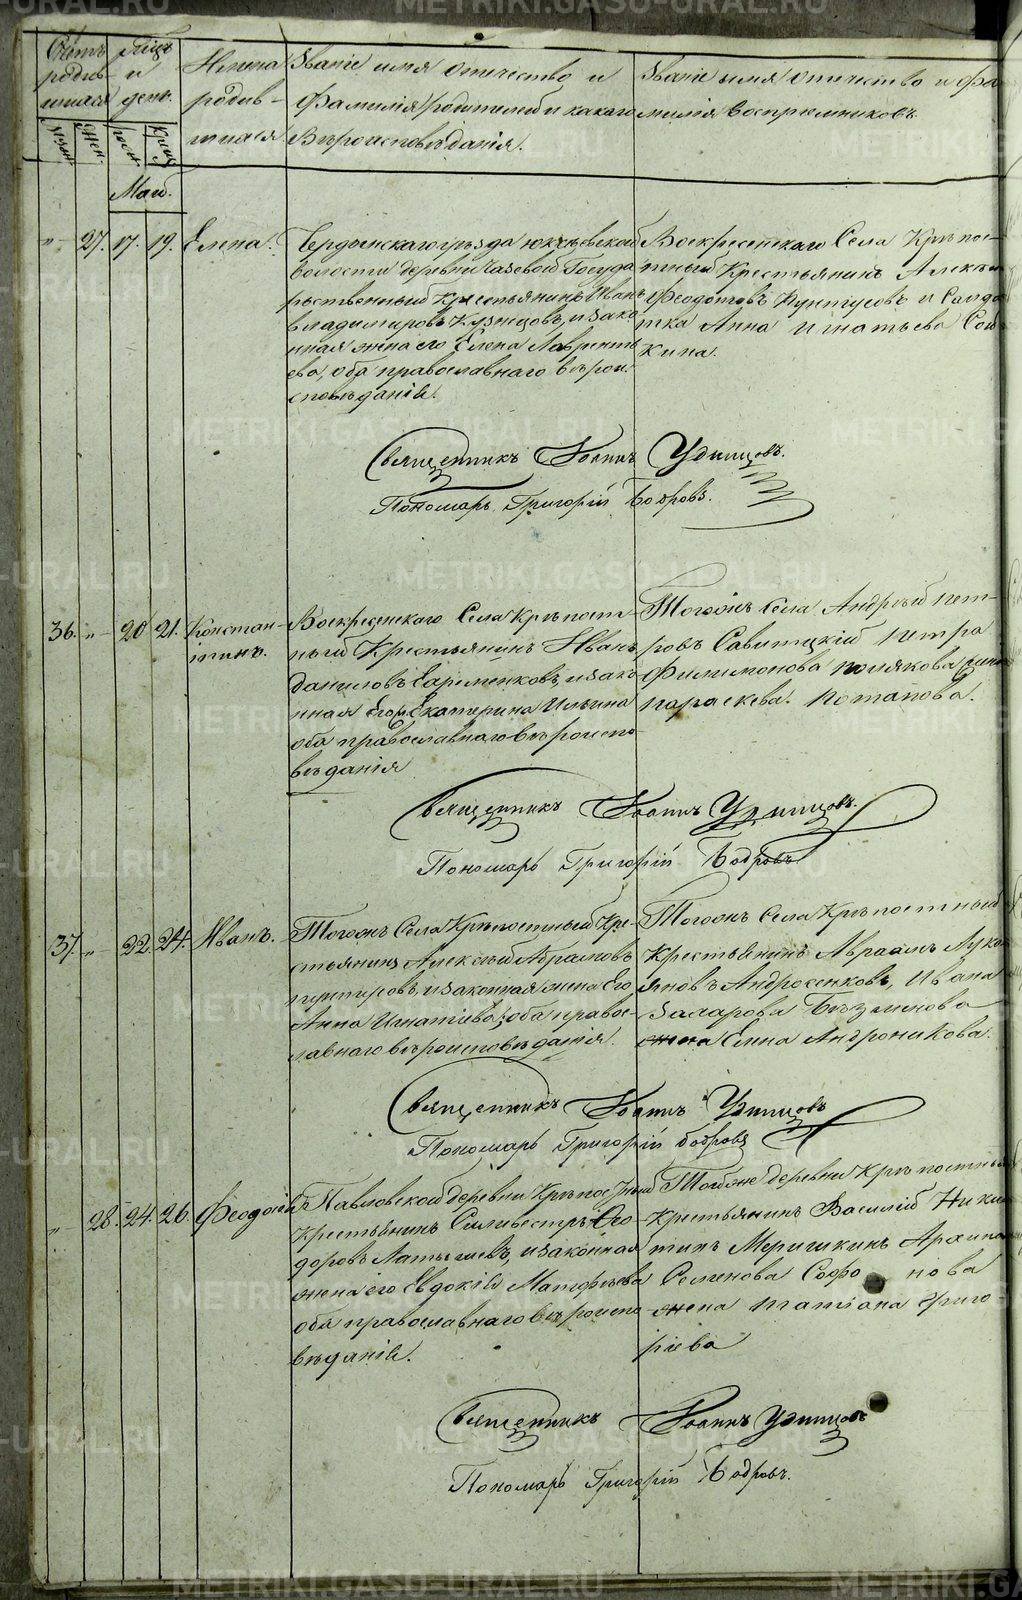 METRIKI.GASO-URAL.RU
Счетъ родив- шихся
Мѣсяцъ и день.
Имена родив- шихся
Званіе имя отчество и
Фамилія родителей и какого
Вѣроисповѣданія.
Званіе имя отчество и фа
милія воспріемниковъ
Муж.
Жен.
Рожд
Крещ
Маій.
„ 27. 17. 19. Елена.
Чердынскаго уѣзда юксѣевской
волости деревни Чазевой Госуда
рственный крестьянинъ Иванъ
владимировъ Кузнецовъ, и зако
нная жена его Елена Лаврентъ
ева, оба православнаго вѣрои
сповѣданія.
Воскресенскаго Села Крѣпос-
тный Крестьянинъ Алексѣй
Феодотовъ Пунтусовъ и Солда
тка Анна Игнатьева Сои
кина.
Священникъ Іоаннъ Удинцовъ.
Пономарь Григорій Бобровъ.
36. „ 20 21. Констан-
тинъ.
Воскресенскаго Села Крѣпост-
ный Крестьянинъ Иванъ
даниловъ Ефременковъ, и зако
нная Его ж Екатерина Ильина
оба православнаго вѣроиспо-
вѣданія
Тогожъ Села Андрей пет-
ровъ Савитцкій петра
Филимонова полякова жена
параскева. потапова.
Священникъ Іоаннъ Удинцовъ.
Пономарь Григорій Бобровъ
37. „ 22. 24. Иванъ.
Тогожъ Села Крѣпостный Кре-
стьянинъ Алексѣй Абрамовъ
и законная жена Его
Анна Игнатіева, оба правос-
лавнаго вѣроисповѣданія.
Тогожъ Села Крѣпостный
Крестьянинъ Авраамъ Лукo
яновъ Андросенковъ, Ивана
Захарова Безменова
жена Елена Андроникова.
Священникъ Іоаннъ Удинцовъ
Пономарь Григорій бобровъ
„ 28. 24. 26. Феодосія
Павловской деревни Крѣпостный
Крестьянинъ Сильвестръ Фео-
доровъ Латышевъ, и законная
жена его Евдокія Матфѣева
оба православнаго вѣроиспо-
вѣданія.
Тойже деревни Крѣпостный
Крестьянинъ Василій Ники
тинъ Меришкинъ Архипа
Семенова Софонова
жена татіана григо
ріева
Священникъ Іоаннъ Удинцовъ
Пономарь Григорій Бобровъ.